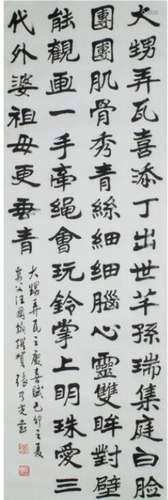 大甥弄瓦喜添丁出世芊孫瑞集庭白臉
團團肌骨秀青絲細細腦心靈雙眸對壁
能觀画一手牽绳會玩鈴掌上明珠愛三
代外婆祖母更垂青
大甥弄瓦之慶喜賦己卯之夏
汪國撰賀張乃光書